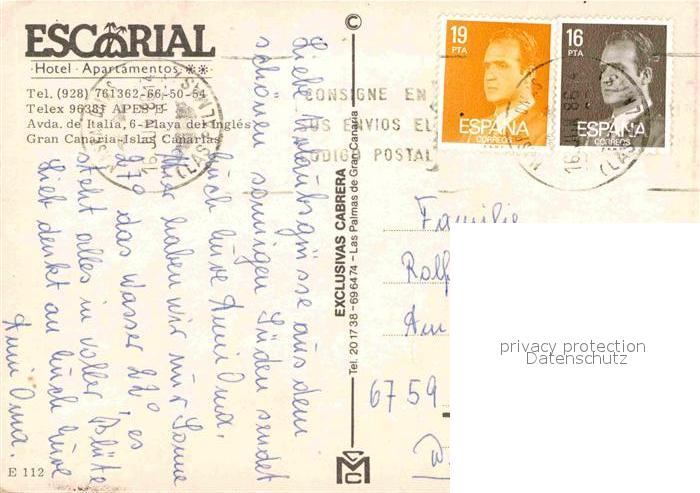 ESCORIAL
Hotel - Apartamentos
Tel. (928) 761362-66-50-54
Telex 96381 APES-E
Avda. de Italia, 6-Playa del Inglés
Gran Canaria-Islas Canarias
CONSIGNE EN
SUS ENVIOS EL
CODIGO POSTAL
19 PTA
ESPAÑA
CORREOS
16 PTA
ESPAÑA
CORREOS
Liebe Urlaubsgrüsse aus dem
schönen sonnigen Süden sendet
Euch Eure Anni Oma.
Hier haben wir nur Sonne
27° das Wasser 22°, es
steht alles in voller Blüte
Lieb denkt an Euch Eure
Anni Oma.
E 112
©
EXCLUSIVAS CABRERA
Tel. 201738-696474 - Las Palmas de Gran Canaria
MCC
Familie
Rolf
Am
6759
privacy protection
Datenschutz